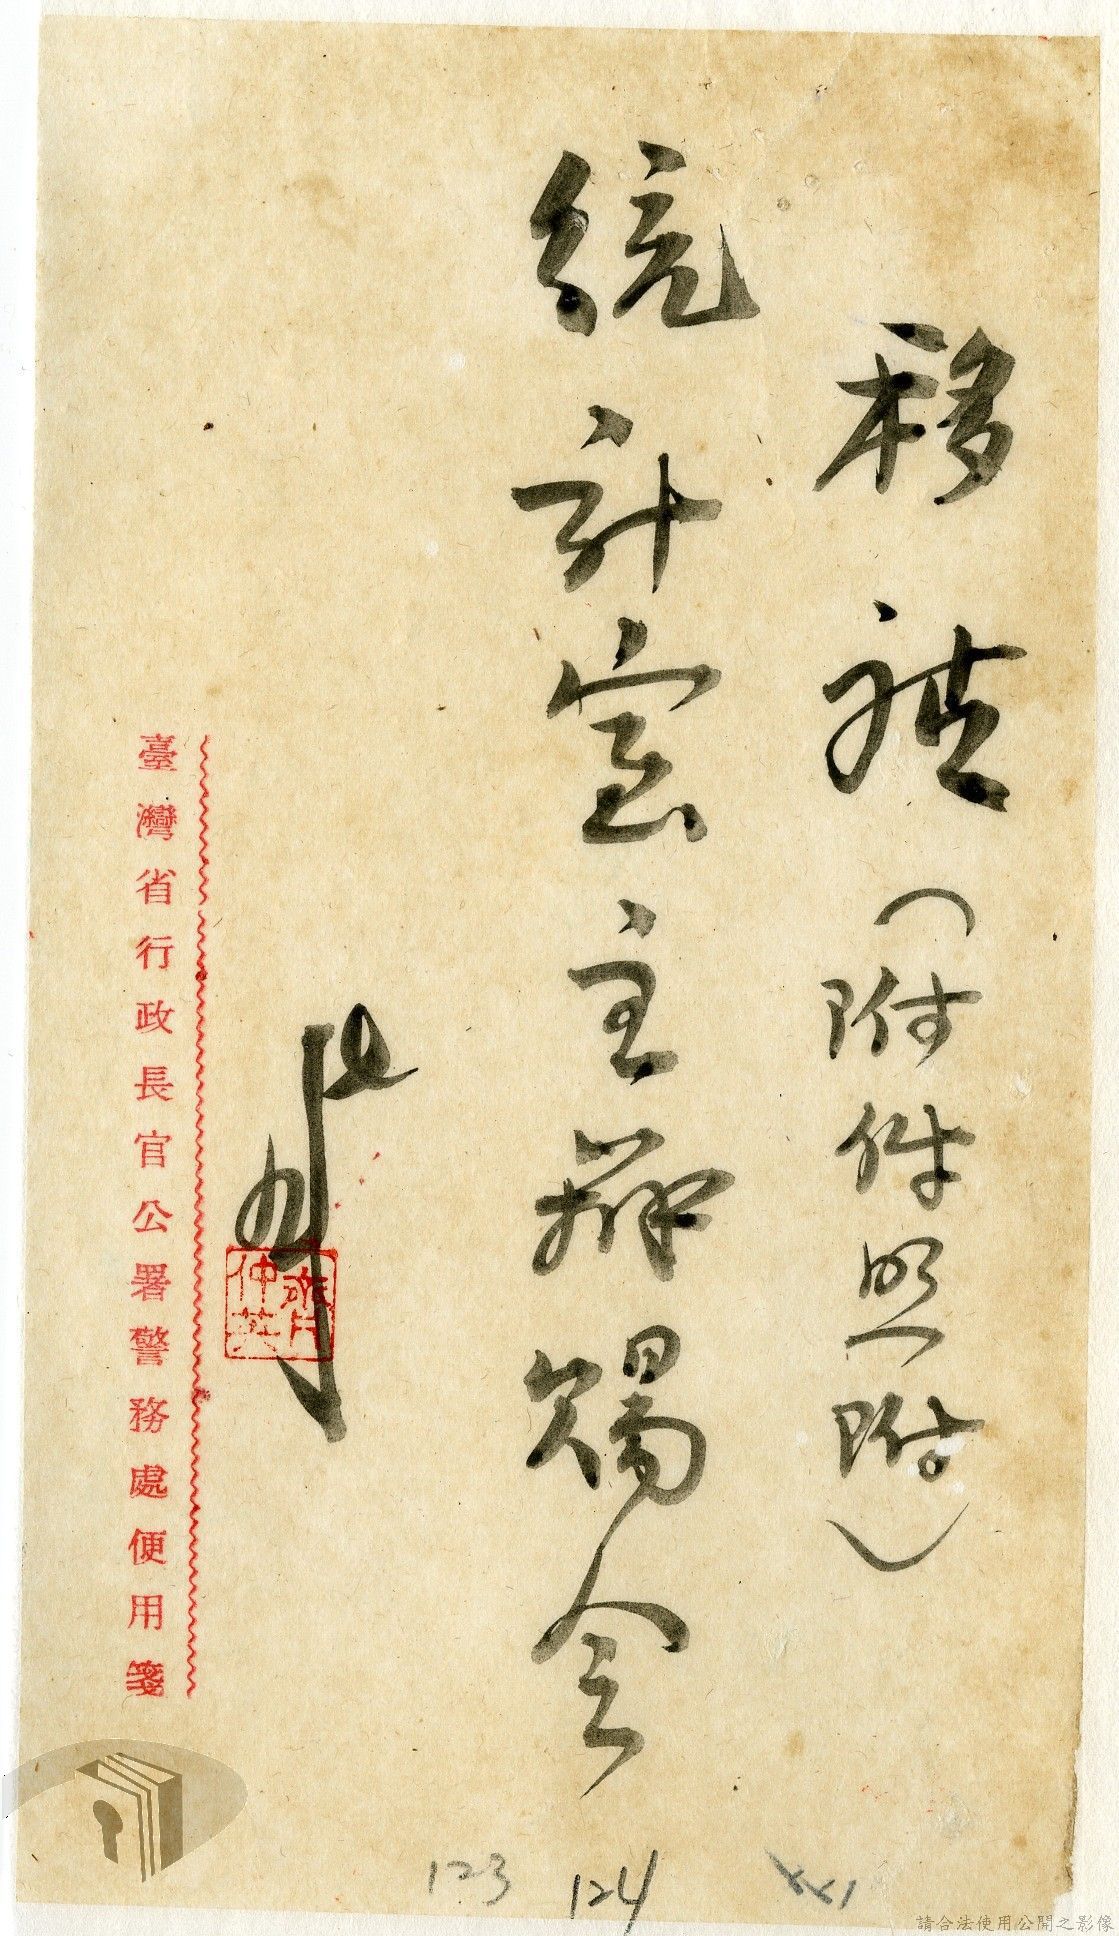 移請（附件照附）
統計室主辦賜會
臺灣省行政長官公署警務處便用箋
仲英
123
124
請合法使用公開之影像